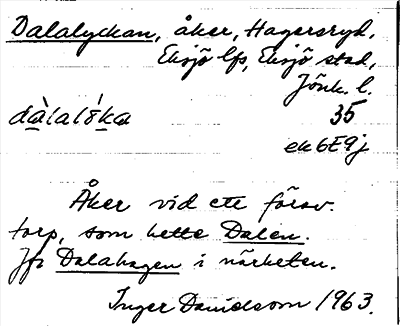 Dalalyckan, åker, Hagersryd,
Eksjö lfs, Eksjö stad,
Jönk. l.
dàlalö́ka 35
ek6E9j
Åker vid ett förov.
torp, som hette Dalen.
Jfr Dalahagen i närheten.
Inger Davidsson 1963.